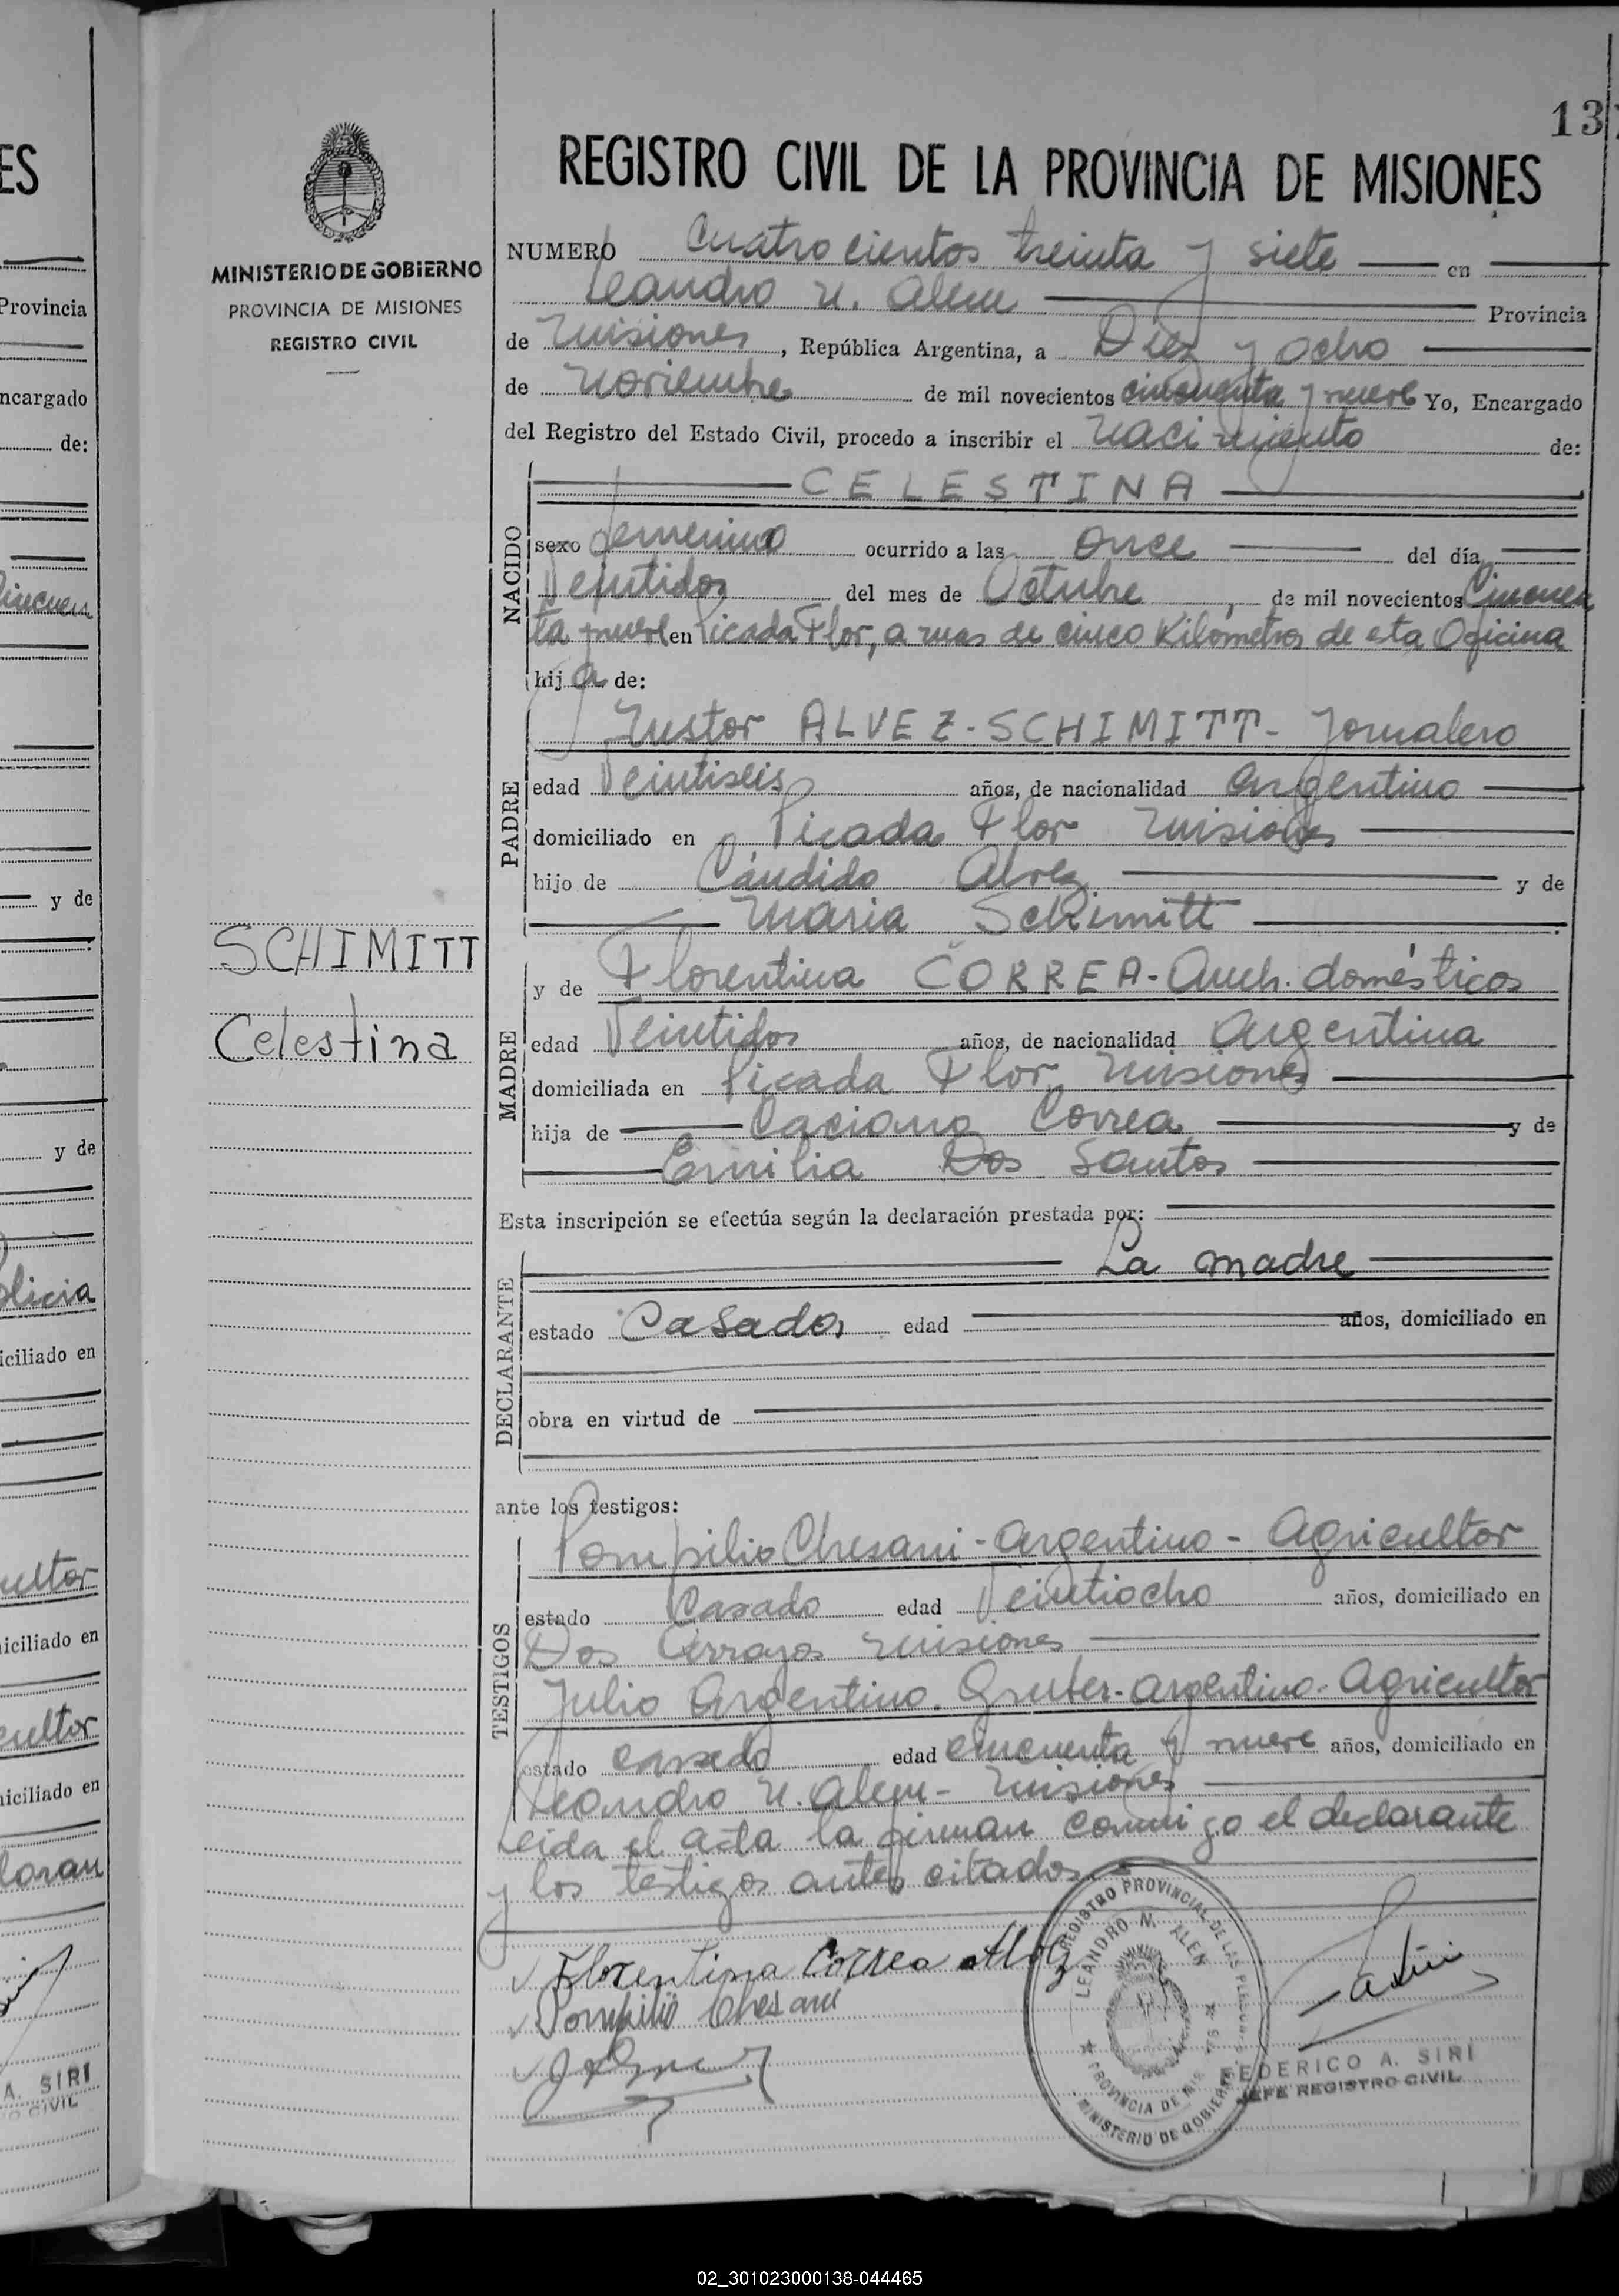 13
REGISTRO CIVIL DE LA PROVINCIA DE MISIONES
MINISTERIO DE GOBIERNO
PROVINCIA DE MISIONES
REGISTRO CIVIL
SCHIMITT
Celestina
NUMERO Cuatrocientos treinta y siete en
Leandro N. Alem Provincia
de Misiones, República Argentina, a Diez y ocho
de Noviembre de mil novecientos cincuenta y nueve Yo, Encargado
del Registro del Estado Civil, procedo a inscribir el Nacimiento de:
NACIDO
CELESTINA
sexo femenino ocurrido a las once del día
Veintidos del mes de Octubre, de mil novecientos Cincuen
ta y nueve en Picada Flor, a mas de cinco Kilómetros de esta Oficina
hija de:
PADRE
Nestor ALVEZ-SCHIMITT- Jornalero
edad Veintiseis años, de nacionalidad argentino
domiciliado en Picada Flor Misiones
hijo de Cándido Alvez y de
Maria Schimitt
MADRE
y de Florentina CORREA- Queh. domésticos
edad Veintidos años, de nacionalidad Argentina
domiciliada en Picada Flor, Misiones
hija de Correa y de
Emilia Dos Santos
Esta inscripción se efectúa según la declaración prestada por:
DECLARANTE
La madre
estado Casada edad años, domiciliado en
obra en virtud de
ante los testigos:
TESTIGOS
Pompilio Chesani - Argentino - Agricultor
estado Casado edad Veintiocho años, domiciliado en
Dos Arroyos Misiones
Julio Argentino Gruber - argentino - Agricultor
estado casado edad cincuenta y nueve años, domiciliado en
Leandro N. Alem - Misiones
Leida el acta la firman conmigo el declarante
y los testigos antes citados
Florentina Correa
Pompilio Chesani
REGISTRO PROVINCIAL DE LAS PERSONAS
LEANDRO N. ALEM
PROVINCIA DE MISIONES
MINISTERIO DE GOBIERNO
FEDERICO A. SIRI
JEFE REGISTRO CIVIL
ES
Provincia
ncargado
de:
y de
y de
iciliado en
ultor
iciliado en
cultor
iciliado en
A. SIRI
O CIVIL
02_301023000138-044465